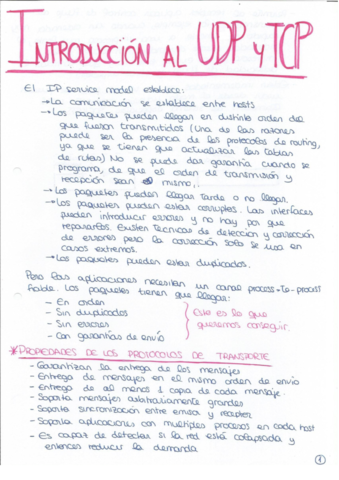 INTRODUCCIÓN AL UDP Y TCP
El IP service model establece:
→ La comunicación se establece entre hosts
→ Los paquetes pueden llegar en distinto orden del
que fueron transmitidos (Una de las razones
puede ser la presencia de los protocolos de routing,
ya que se tienen que actualizar las tablas
de rutas) No se puede dar garantía cuando se
programa, de que el orden de transmisión y
recepción sean el mismo.
→ Los paquetes pueden llegar tarde o no llegar.
→ Los paquetes pueden estar corruptos. Las interfaces
pueden introducir errores y no hay por que
repararlos. Existen técnicas de detección y corrección
de errores pero la corrección solo se usa en
casos extremos.
→ Los paquetes pueden estar duplicados.
Pero las aplicaciones necesitan un canal process-to-process
fiable. Los paquetes tienen que llegar:
- En orden
- Sin duplicados
- Sin errores
- Con garantías de envío
Esto es lo que
queremos conseguir.
* PROPIEDADES DE LOS PROTOCOLOS DE TRANSPORTE
- Garantizan la entrega de los mensajes
- Entrega de mensajes en el mismo orden de envío
- Entrega de al menos 1 copia de cada mensaje.
- Soporta mensajes arbitrariamente grandes
- Soporta sincronización entre emisor y receptor
- Soporta aplicaciones con multiples procesos en cada host
- Es capaz de detectar si la red está colapsada y
entonces reducir la demanda
1